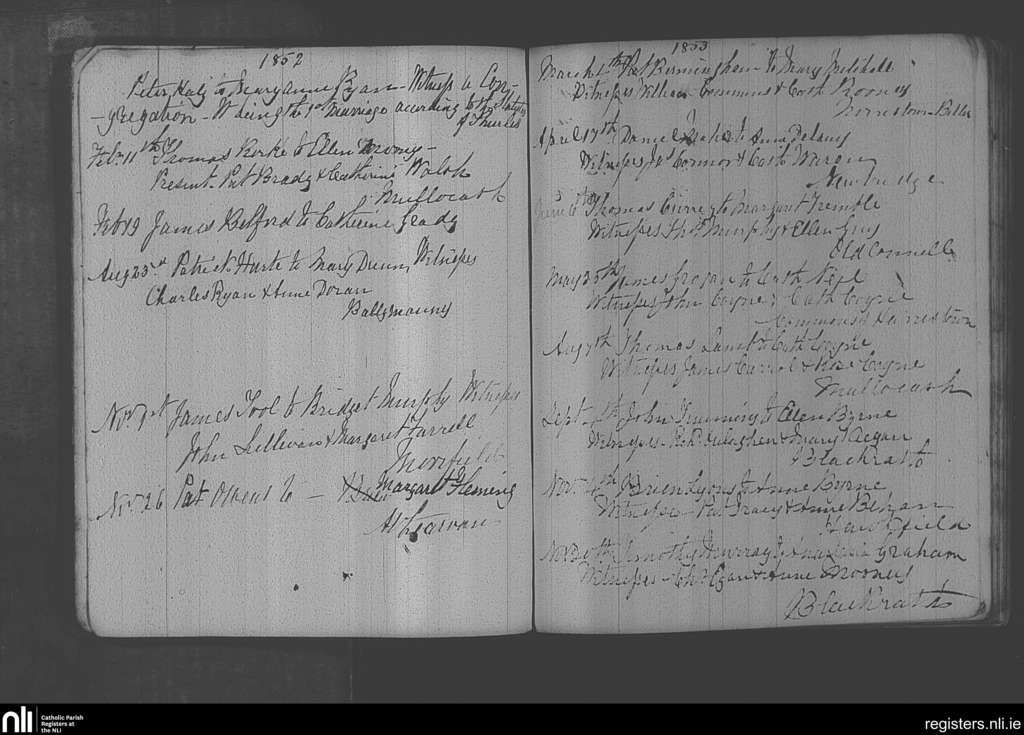 1852
Peter Kelly to Mary Anne Ryan - Witness a Con-
-gregation - It being the 1st Marriage according to the Statutes
of Thurles
Feb. 11th Thomas Rorke to Ellen Mooney -
Present. Pat Brady & Catherine Walsh
Mullocash
Feb 19 James Belford to Catherine Grady
Aug 23rd Patrick Harte to Mary Dunn, Witnesses
Charles Ryan & Anne Doran
Ballymanny
Nov. 1st James Tool to Bridget Murphy Witnesses
John Sullivan & Margaret Farrell
Morefield
Nov. 26 Pat to - Margaret Fleming
1853
March Pat Bermingham to Mary
Witnesses William Commins & Cath Rooney
April 17th Daniel to Anne Delany
Witnesses Jas Connor & Cath Waren
Newbridge
June 6th Thomas to Margaret Tremble
Witnesses Thos Murphy & Ellen
Old Connell
May 25th James Grogan to Cath
Witnesses John Coyne & Cath Coyne
Commons Harristown
Aug 7th Thomas to Cath Coyne
Witnesses James Carrol & Rose Coyne
Mullocash
Sept John to Ellen Byrne
Witnesses & Mary Keegan
Blackrath
Nov. Brien Lyons to Anne Byrne
Witnesses - Pat Tracy & Anne Behan
Hawkfield
Nov 20th Timothy Murray to Anastasia Graham
Witnesses - Chs Egan & Anne Mooney
Blackrath
nli
Catholic Parish
Registers at
the NLI
registers.nli.ie